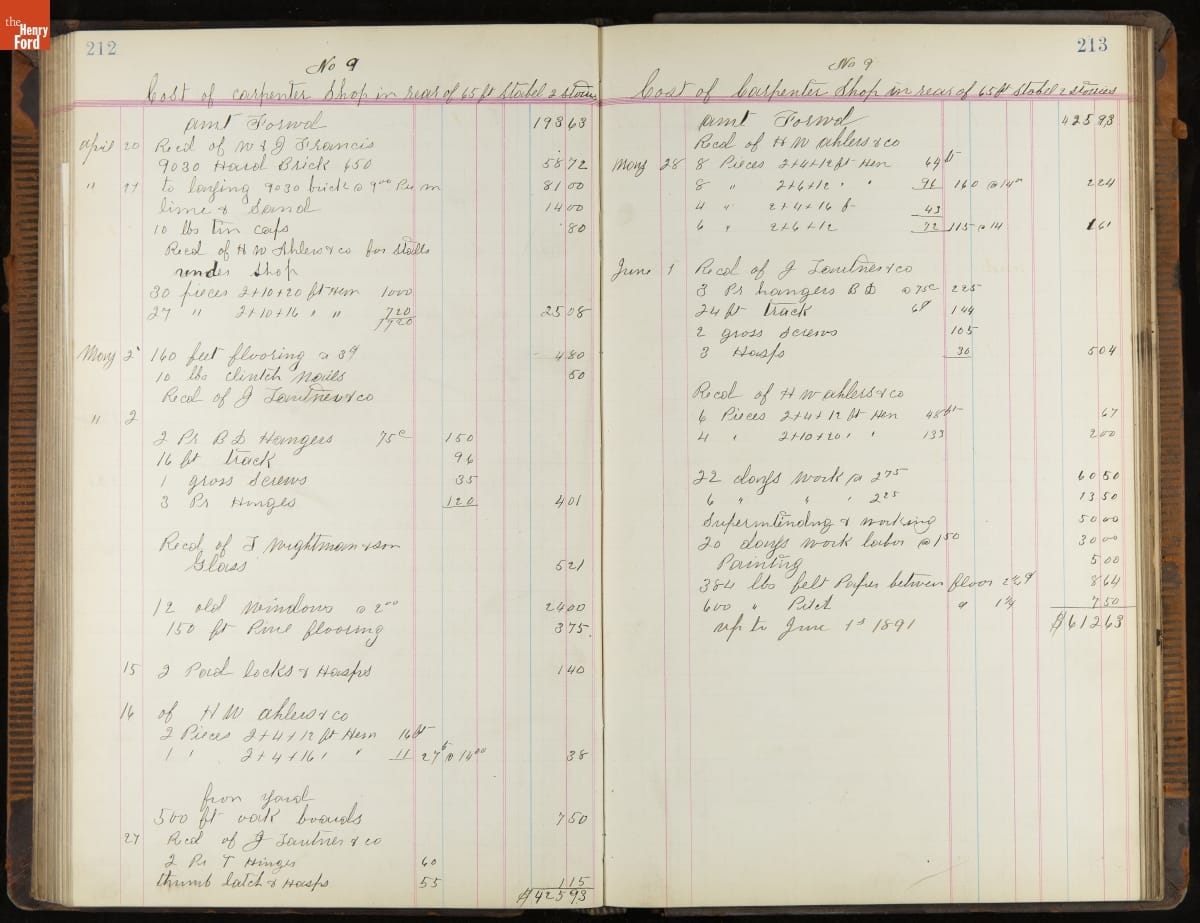 the
Henry
Ford
212
No 9
Cost of carpenter Shop in rear of 65 ft Stabel 2 stories
amt Forwd 19363
april 20 Recd of W & J Francis
9030 Hard Brick 650 5872
" 27 to laying 9030 brick @ 900 Per m 8100
lime & Sand 1400
10 lbs tin caps 80
Recd of H W Ahlers & co for Stalls
under Shop
30 pieces 2+10+20 ft Hem 1000
27 " 2+10+16 " " 720 2508
1720
May 2 160 feet flooring @ 3¢ 480
10 lbs clintch Nailes 50
Recd of J Lautner & co
" 2
2 Pr B D Hangers 75c 150
16 ft track 96
1 gross Screws 35
3 Pr Hinges 120 401
Recd of J Wightman & son
Glass 521
12 old windows @ 2.00 2400
150 ft Pine flooring 375
15 2 Pad locks & Hasps 140
16 of H W ahlers & co
2 Pieces 2+4+12 ft Hem 16 ft
1 " 2+4+16 " " 11 27 ft @ 14.00 38
from yard
500 ft oak boards 750
27 Recd of J Lautner & co
2 Pr T Hinges 60
thumb latch & Hasps 55 115
$42593
213
No 9
Cost of Carpenter Shop in rear of 65 ft Stabel 2 stories
amt Forwd 42593
Recd of H W ahlers & co
May 28 8 Pieces 2+4+12 ft Hem 64 ft
8 " 2+6+12 " " 96 160 @ 14.00 224
4 " 2+4+16 ft 43
6 " 2+6+12 72 115 @ 14 161
June 1 Recd of J Lautner & co
3 Pr hangers B D @ 75c 225
24 ft track 6¢ 144
2 gross Screws 105
3 Hasps 30 504
Recd of H W ahlers & co
6 Pieces 2+4+12 ft Hem 48 ft 67
4 " 2+10+20 " " 133 200
22 days work @ 2.75 6050
6 " " " 2.25 1350
Superintending & working 5000
20 days work labor @ 1.50 3000
Painting 500
384 lbs felt Paper between floor 2¼¢ 864
600 " Pitch @ 1¼ 750
up to June 1st 1891 $61263